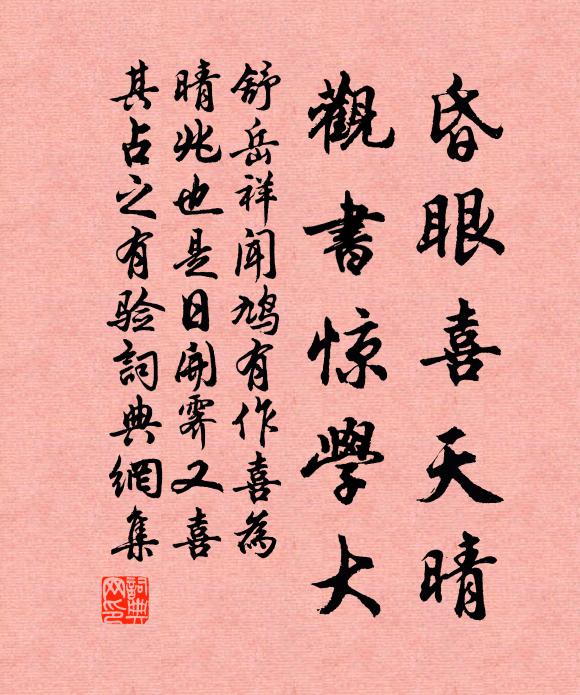 昏眼喜天晴
觀書惊學大
舒岳祥闻鸠有作喜為
晴兆也是日開霽又喜
其占之有验詞典網集
詞典
网印